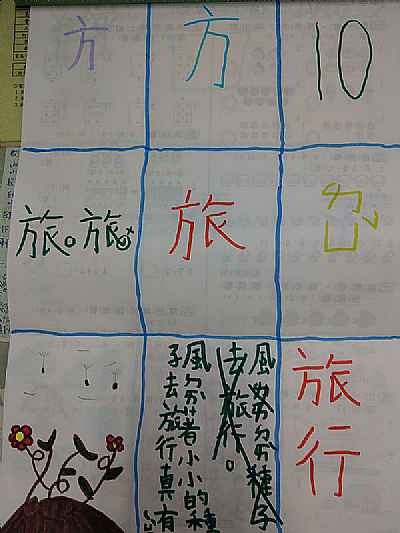 方
方
10
旅。旅
旅
ㄌㄩˇ
風種子
去旅行。
風著小小的種
子去旅行真有
旅行